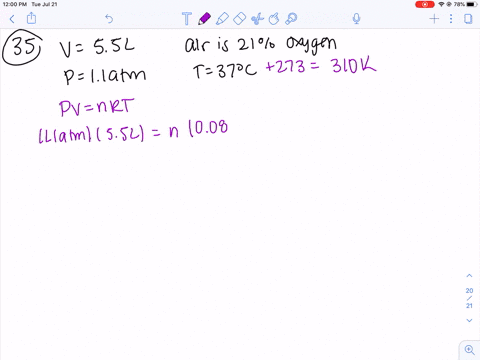 12:00 PM Tue Jul 21
78%
35 V = 5.5L air is 21% oxygen
P = 1.1atm T = 37°C +273 = 310K
PV = nRT
(1.1atm)(5.5L) = n (0.08
20
/
21